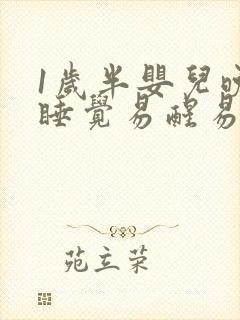 1歲半嬰兒
睡覺易醒易
苑立荣